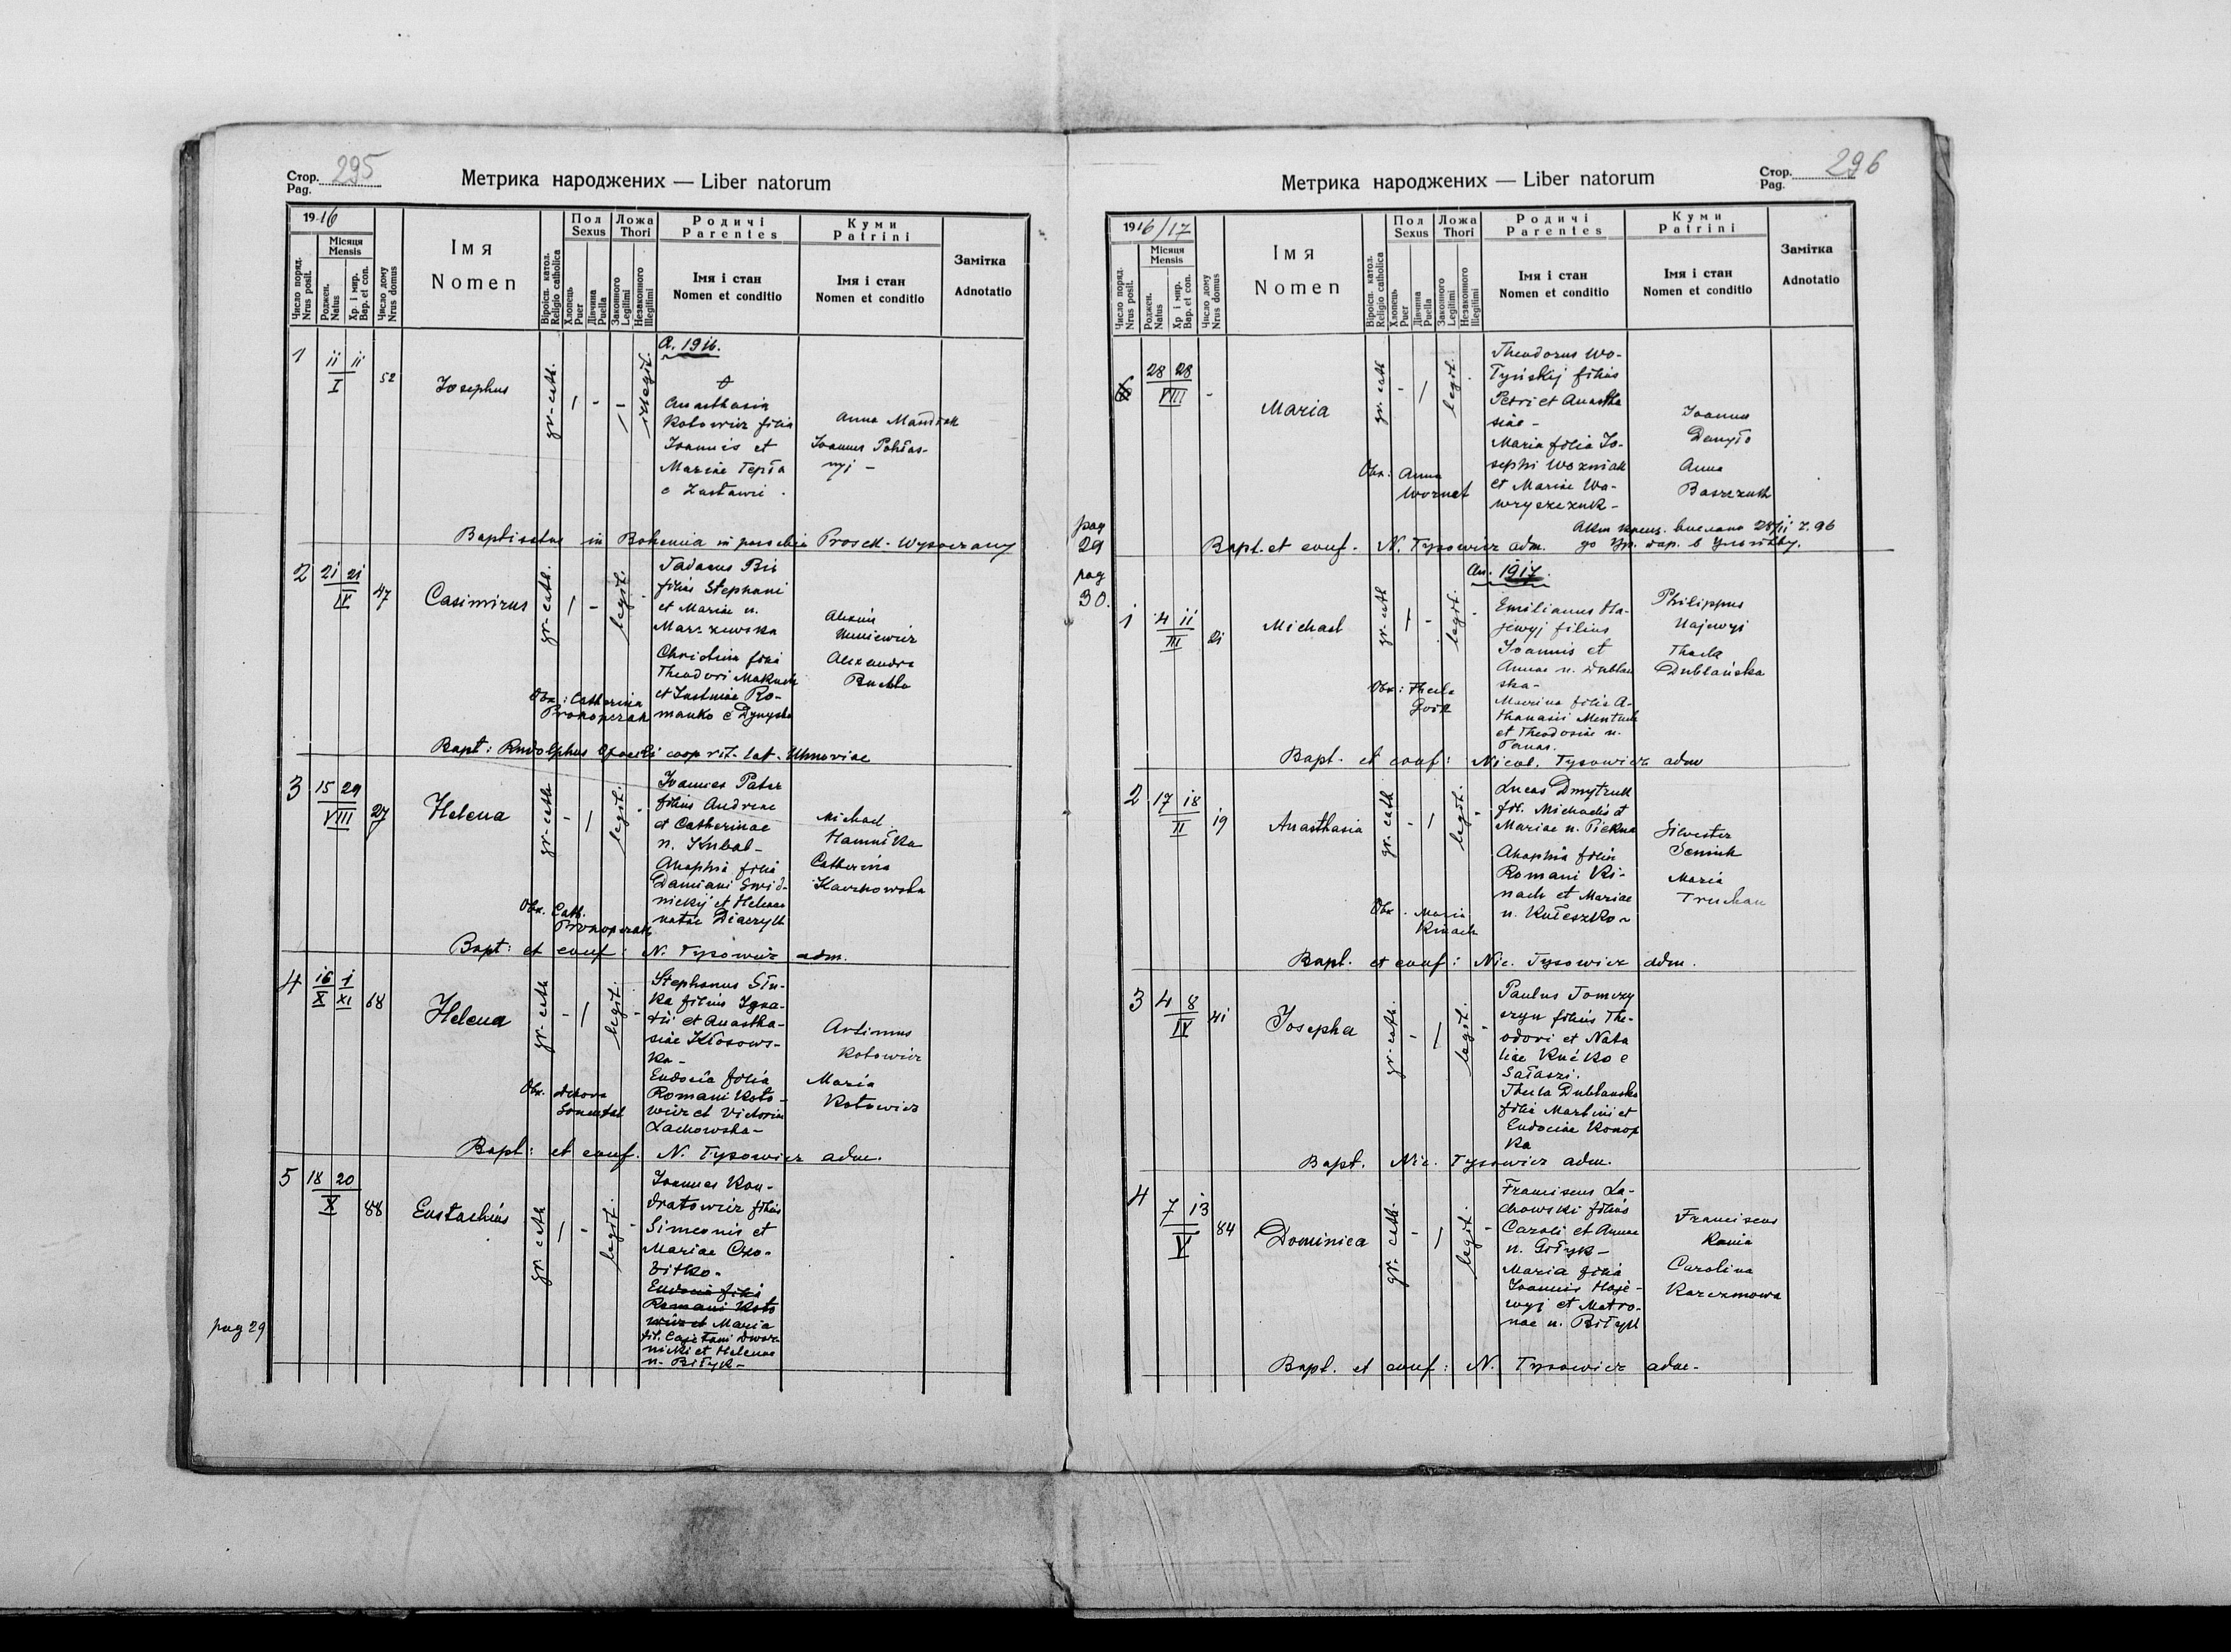 Стор. 295
Pag.
Метрика народжених — Liber natorum
1916
Число поряд.
Nrus posit.
Місяця
Mensis
Роджен.
Natus
Хр. і мир.
Bap. et con.
Число дому
Nrus domus
Імя
Nomen
Віросп. катол.
Religio catholica
Пол
Sexus
Хлопець
Puer
Дівчина
Puella
Ложа
Thori
Законного
Legitimi
Незаконного
Illegitimi
Родичі
Parentes
Імя і стан
Nomen et conditio
Куми
Patrini
Імя і стан
Nomen et conditio
Замітка
Adnotatio
A. 1916.
1
ii ii
I
52
Josephus
gr-cath.
illegit.
Anasthasia
Kotowicz filia
Joannis et
Mariae Tepła
e Zastawie.
Anna
Joannes
Baptisatus in Bohemia in parochia Prosek-Wysoczany
2
2i 2i
IV
47
Casimirus
gr-cath.
legit.
Tadaeus
filius Stephani
et Mariae n.
Marszewska
Christina filia
Theodori Makuch
et Justniae Ro-
manko e Dynyska
Alexandra
Obs.: Catherina
Prokopczak
Bapt: Rudolphus coop rit. lat. Uhnoviae
3
15 29
VIII
27
Helena
gr-cath
legit.
Joannes Pater
filius Andreae
et Catherinae
n. Kubal-
Anaphia filia
Damiani Swid-
nickij et Helenae
natae Diaczyk
Michael
Catherina
Obs. Cath.
Prokopczak
Bapt: et conf: N. Tysowicz adm.
4
i6 i
X XI
68
Helena
gr-cath
legit.
Stephanus
ka filius Igna-
tii et Anastha-
siae Kłosows-
ka-
Eudocia filia
Romani Koto-
wicz et Victoria
Lachowska-
Kotowicz
Maria
Kotowicz
Bapt: et conf. N. Tysowicz adm.
5
18 20
X
88
Eustachius
gr. cath
legit.
Joannes Kon-
dratowicz filius
Simeonis et
Mariae
Eudocia filia
Romani Koto
wicz et Maria
fil. Cajetani Dwor-
nicki et Helenae
n. Biłyk-
pag 29
Стор. 296
Pag.
Метрика народжених — Liber natorum
1916/17
Число поряд.
Nrus posit.
Місяця
Mensis
Роджен.
Natus
Хр. і мир.
Bap. et con.
Число дому
Nrus domus
Імя
Nomen
Віросп. катол.
Religio catholica
Пол
Sexus
Хлопець
Puer
Дівчина
Puella
Ложа
Thori
Законного
Legitimi
Незаконного
Illegitimi
Родичі
Parentes
Імя і стан
Nomen et conditio
Куми
Patrini
Імя і стан
Nomen et conditio
Замітка
Adnotatio
6
28 28
VIII
Maria
gr-cath
legit.
Theodorus Wo-
łyńskij filius
Petri et Anastha
siae-
Maria filia Jo-
sephi Wozniak
et Mariae Wa-
wryszczuk-
Joannes
Danyło
Anna
Baszczuk
Obs: Anna
pag
29
Bapt. et conf. N. Tysowicz adm.
pag
30.
An. 1917.
i
4 ii
III
2i
Michael
gr-cath
legit.
Emilianus Ha-
jewyj filius
Joannis et
Annae n. Dublan
ska-
Marina filia A-
thanasii
et Theodosiae n.
Panas.
Philippus
Hajewyj
Thecla
Dublańska
Obs: Thecla
Bapt. et conf: Nicol. Tysowicz adm
2
17 i8
II
i9
Anasthasia
gr. cath
legit.
Lucas Dmytruk
fil. Michaelis et
Mariae n. Piekna
Anaphia filia
Romani Ki-
nach et Mariae
n. Kułeszko-
Silvester
Maria
Truchan
Obs. Maria
Kinach
Bapt. et conf: Nic. Tysowicz adm.
3
4 8
IV
4i
Josepha
gr-cath.
legit.
Paulus Tomczy
szyn filius The-
odori et Nata
liae Kućko e
Sałaszi.
Thecla Dublanska
filia Martini et
Eudociae Konop
ka
Bapt. Nic. Tysowicz adm.
4
7 i3
V
84
Dominica
gr. cath.
legit.
Franciscus La-
chowski filius
Caroli et Annae
n. Gołyk-
Maria filia
Joannis Haje-
wyj et Matro-
nae n. Biłyk
Franciscus
Kania
Carolina
Karczmowa
Bapt. et conf: N. Tysowicz adm-